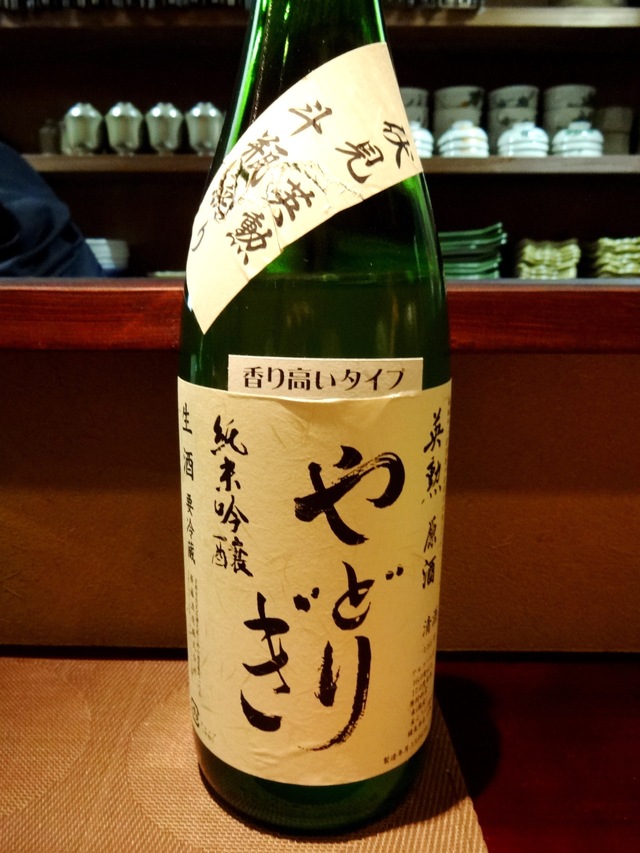 伏見
英勲
斗瓶繰り
香り高いタイプ
英勲 原酒
清酒
やどりぎ
純米吟醸
生酒 要冷蔵